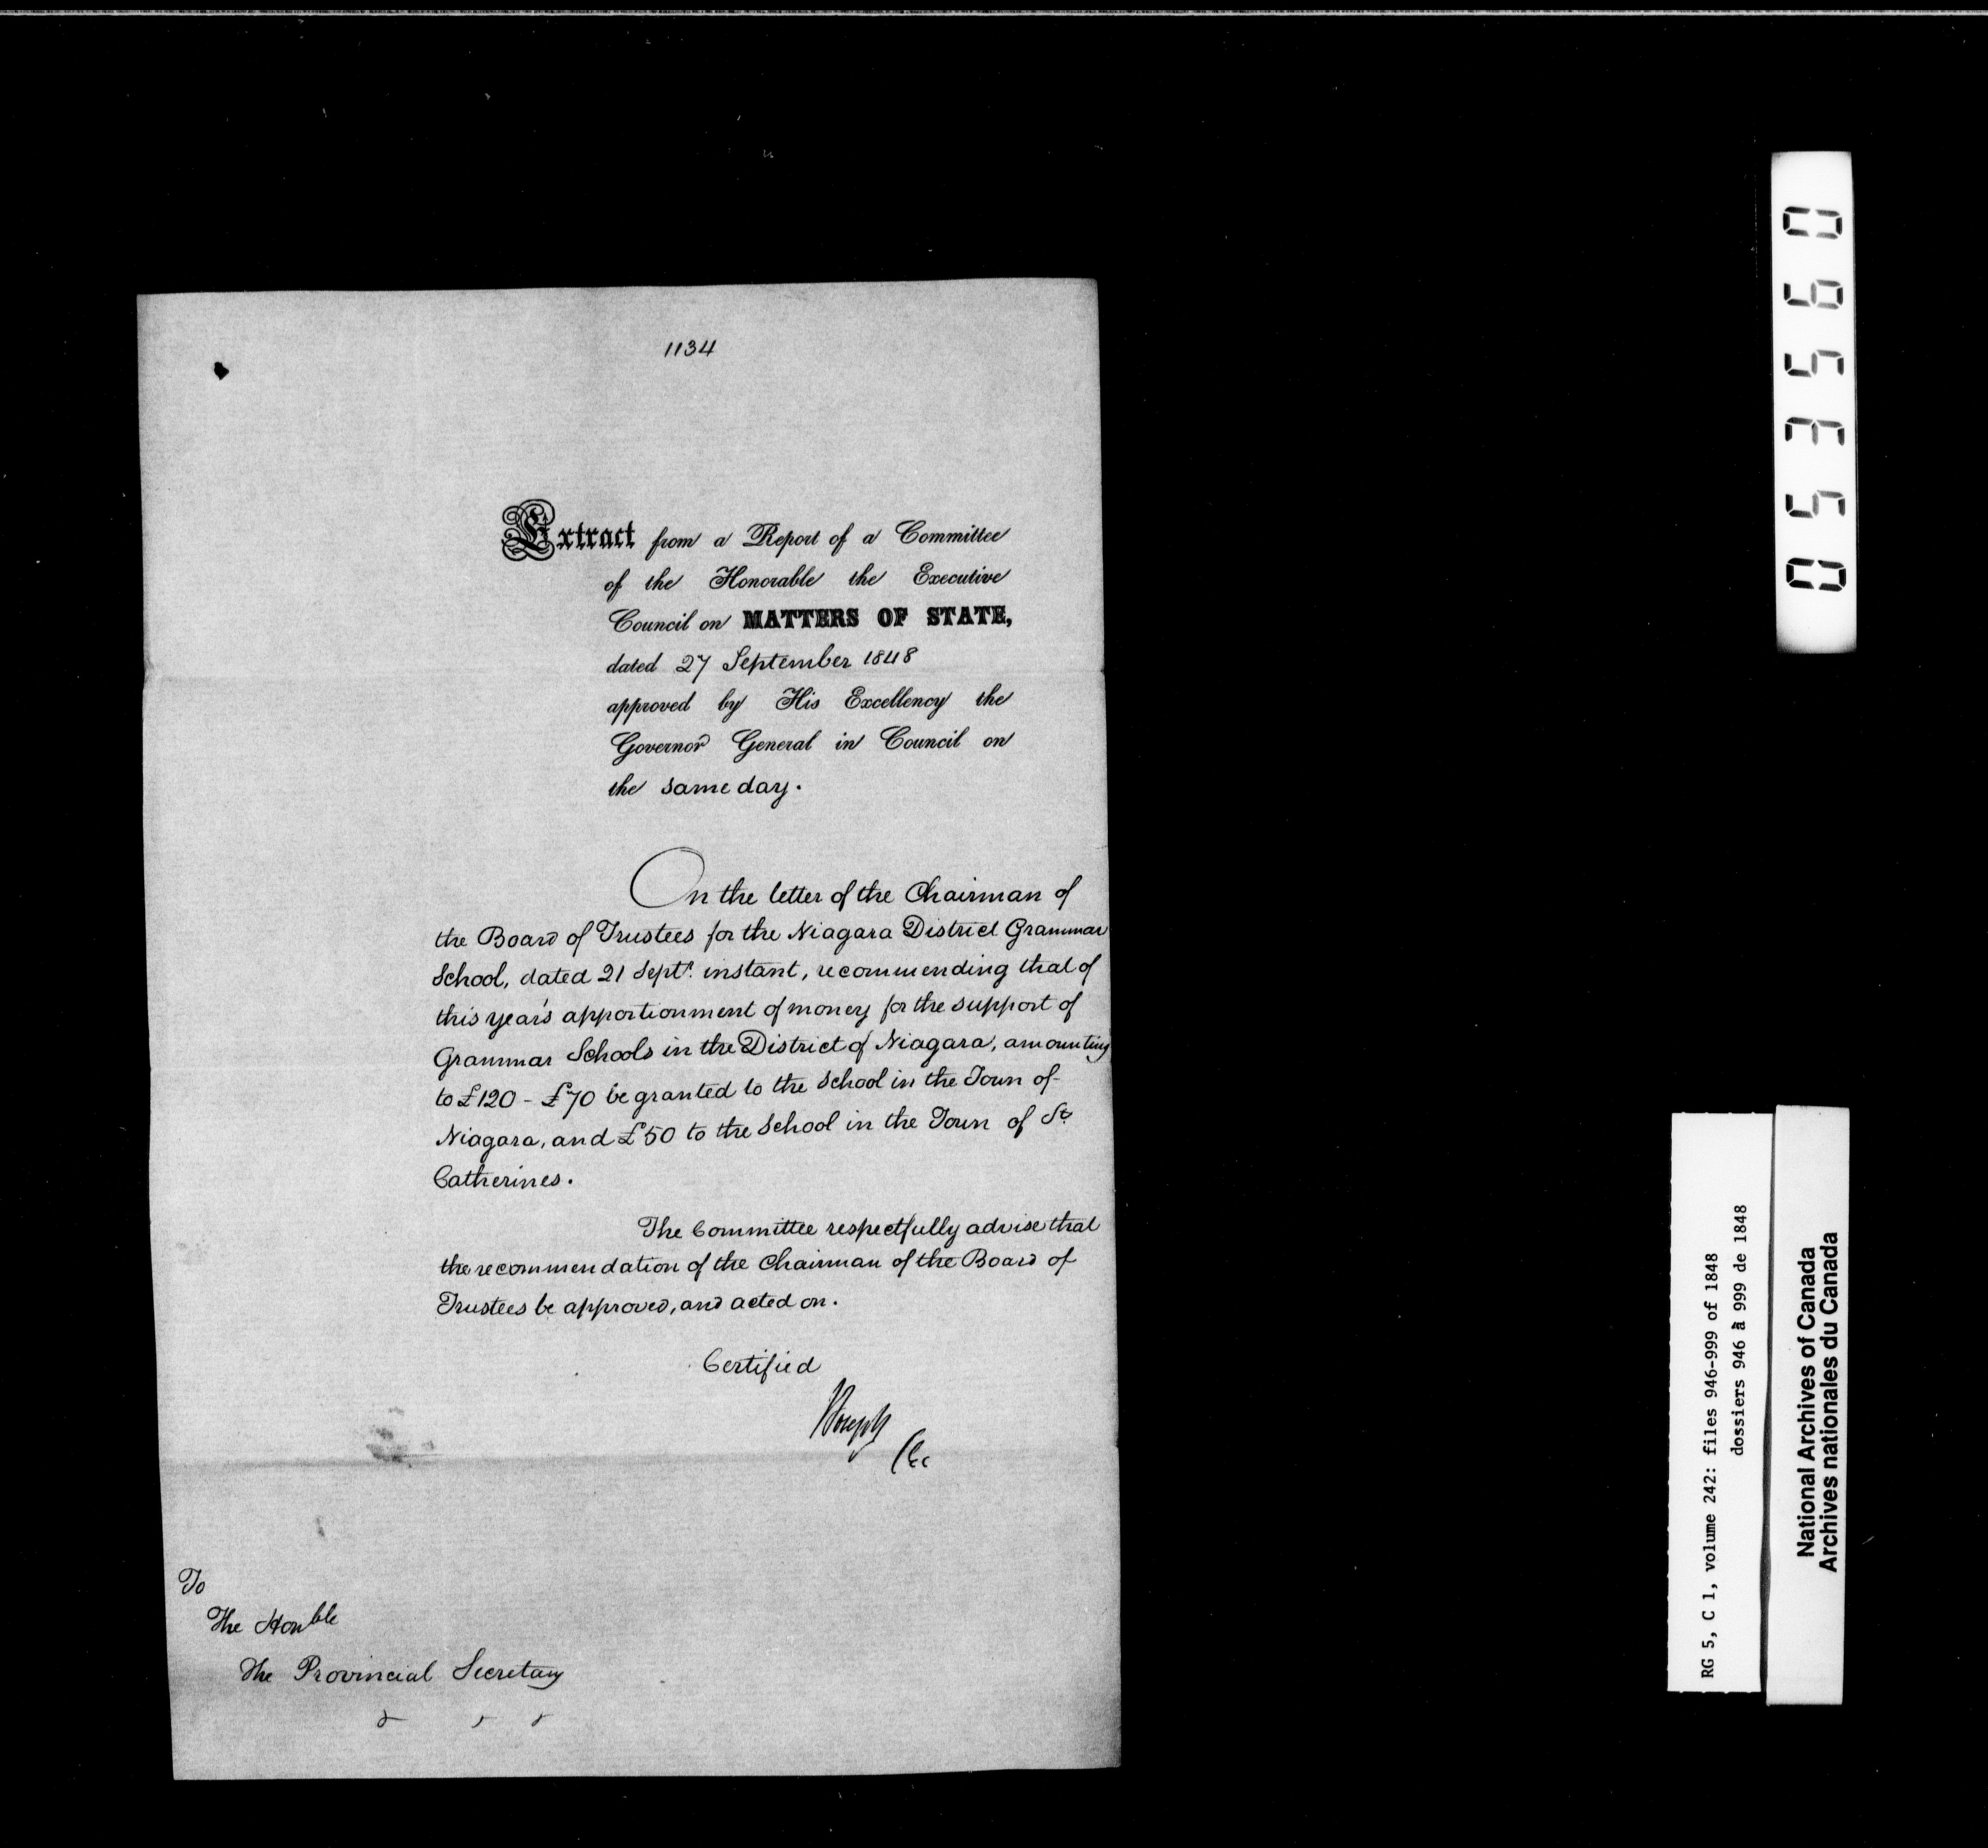 1134
Extract from a Report of a Committee
of the Honorable the Executive
Council on MATTERS OF STATE,
dated 27 September 1848
approved by His Excellency the
Governor General in Council on
the same day.
On the letter of the Chairman of
the Board of Trustees for the Niagara District Grammar
School, dated 21 Septr. instant, recommending that of
this year's apportionment of money for the support of
Grammar Schools in the District of Niagara, amounting
to £120 - £70 be granted to the School in the Town of
Niagara, and £50 to the School in the Town of St.
Catherines.
The Committee respectfully advise that
the recommendation of the Chairman of the Board of
Trustees be approved, and acted on.
Certified
Joseph
To
The Honble
The Provincial Secretary
053560
RG 5, C 1, volume 242: files 946-999 of 1848
dossiers 946 à 999 de 1848
National Archives of Canada
Archives nationales du Canada